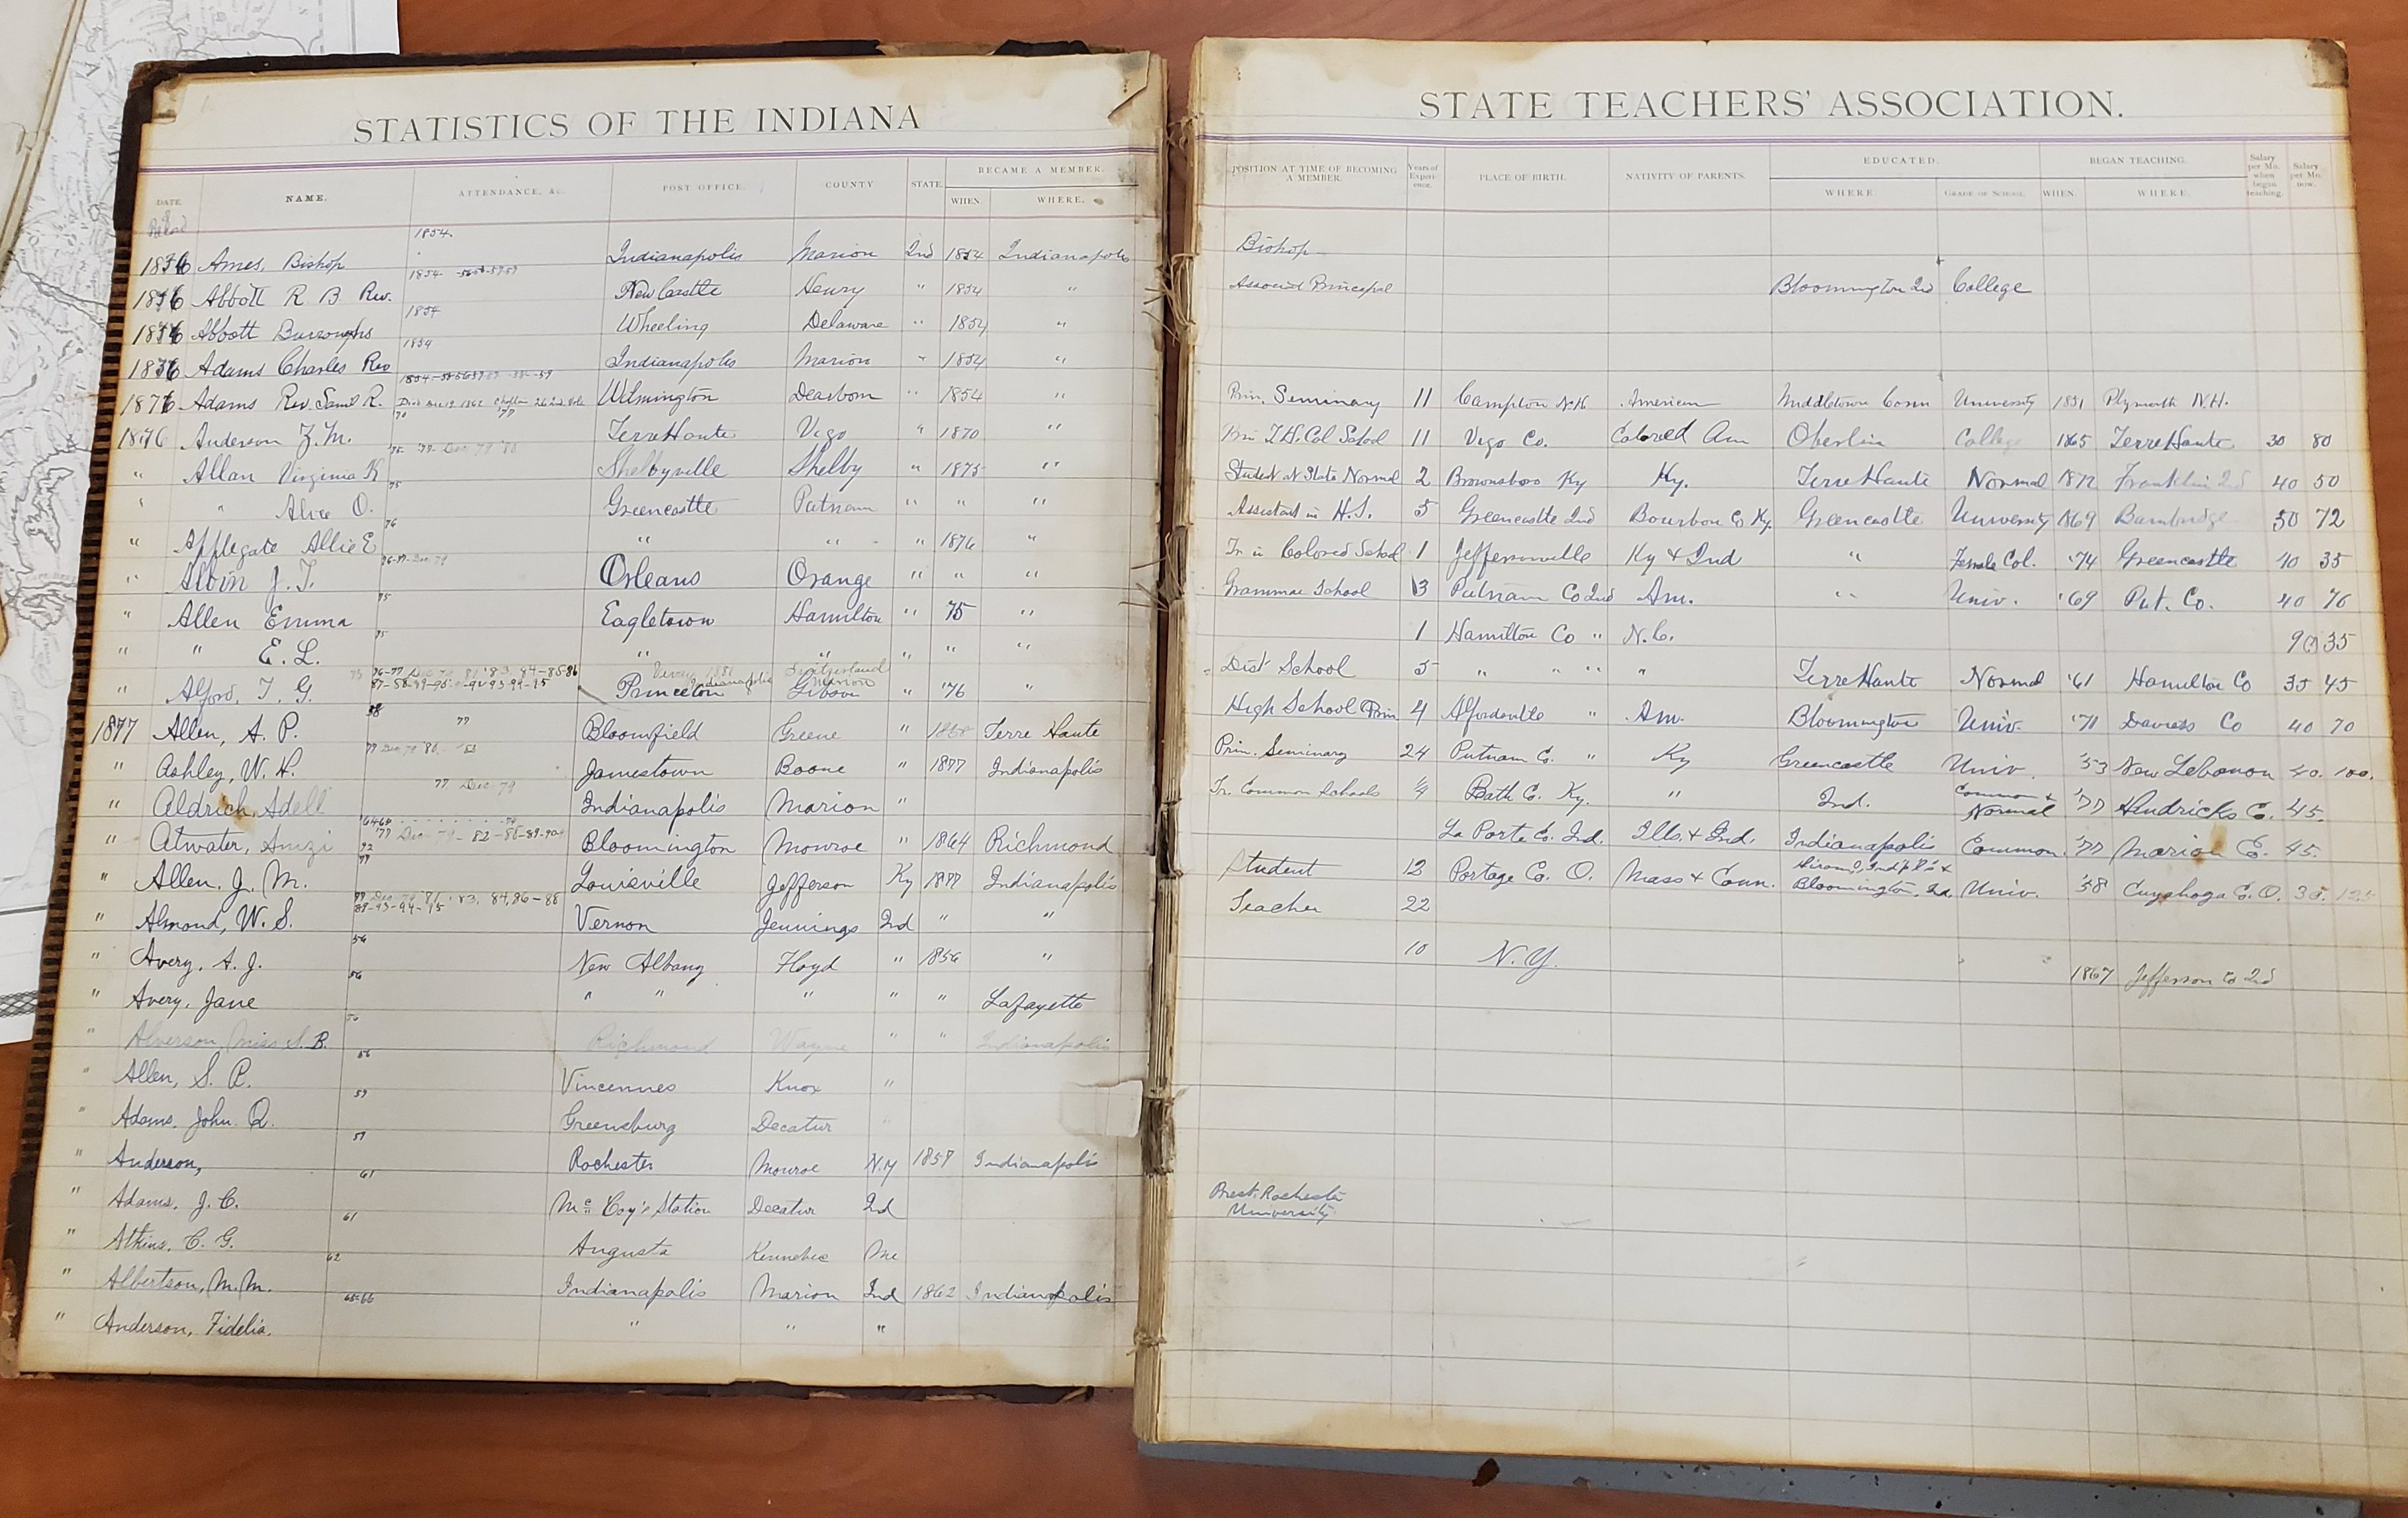 STATISTICS OF THE INDIANA
DATE. NAME. ATTENDANCE, &c. POST OFFICE. COUNTY STATE. BECAME A MEMBER. WHEN. WHERE.
1854.
1876 Ames, Bishop Indianapolis Marion Ind 1854 Indianapolis
1854-
1876 Abbott R B Rev. New Castle Henry " 1854 "
1854
1876 Abbott Burroughs Wheeling Delaware " 1854 "
1854
1876 Adams Charles Rev Indianapolis Marion " 1854 "
1876 Adams Rev. Saml R. Wilmington Dearborn " 1854 "
70 '77
1876 Anderson Z. M. Terre Haute Vigo " 1870 "
75 '77- Dec 79 '80
" Allan Virginia K Shelbyville Shelby " 1875 "
75
" " Alice O. Greencastle Putnam " " "
76
" Applegate Allie E " " " 1876 "
76-77- Dec 79
" Alvin J. T. Orleans Orange " " "
75
" Allen Emma Eagletown Hamilton " 75 "
75
" " E. L. " " " " "
76-77 Dec 79 81 '83, 84-85-86 Vevay 1881 Switzerland
Indianapolis Marion
" Alford, T. G. Princeton Gibson " '76 "
58 77
1877 Allen, A. P. Bloomfield Greene " Terre Haute
77 Dec 79 '80
" Ashley, W. H. Jamestown Boone " 1877 Indianapolis
77 Dec 79
" Aldrich, Adell Indianapolis Marion "
'77 Dec 79 - 82 - 85-89-90
92
" Atwater, Amzi Bloomington Monroe " 1864 Richmond
77
" Allen, J. M. Louisville Jefferson Ky 1877 Indianapolis
77 Dec 79 '81, '83, 84, 86-88
89-93-94-95
" Almond, W. S. Vernon Jennings Ind " "
56
" Avery, A. J. New Albany Floyd " 1856 "
56
" Avery, Jane " " " " " Lafayette
56
" Alverson, Miss S. B. Richmond Wayne " " Indianapolis
56
" Allen, S. P. Vincennes Knox "
57
" Adams, John Q. Greensburg Decatur "
57
" Anderson, Rochester Monroe N.Y 1857 Indianapolis
61
" Adams, J. C. McCoy's Station Decatur Ind
61
" Atkins, C. G. Augusta Kennebec Me
62
" Albertson, M. M. Indianapolis Marion Ind 1862 Indianapolis
65-66
" Anderson, Fidelia. " " "
STATE TEACHERS' ASSOCIATION.
POSITION AT TIME OF BECOMING A MEMBER. Years of Experience. PLACE OF BIRTH. NATIVITY OF PARENTS. EDUCATED. WHERE GRADE OF SCHOOL. BEGAN TEACHING. WHEN. WHERE. Salary per Mo. when began teaching. Salary per Mo. now.
Bishop
Associate Principal Bloomington Ind College
Prin. Seminary 11 Campton N.H. American Middletown Conn University 1831 Plymouth N.H.
Prin T.H. Col School 11 Vigo Co. Colored Am Oberlin College 1865 Terre Haute 30 80
Student at State Normal 2 Brownsboro Ky Ky. Terre Haute Normal 1872 Franklin Ind 40 50
Assistant in H.S. 5 Greencastle Ind Bourbon Co Ky. Greencastle University 1869 Bainbridge 50 72
Tr in Colored School 1 Jeffersonville Ky & Ind " Female Col. '74 Greencastle 40 35
Grammar School 13 Putnam Co Ind Am. " Univ. '69 Put. Co. 40 76
1 Hamilton Co " N.C. 35
Dist School 5 " " " " Terre Haute Normal '61 Hamilton Co 35 45
High School Prin 4 Alfordsville " Am. Bloomington Univ. '71 Daviess Co 40 70
Prin. Seminary 24 Putnam Co. " Ky Greencastle Univ. '53 New Lebanon 40. 100.
Tr. Common Schools Bath Co. Ky. " Ind. Common & Normal '77 Hendricks Co. 45.
La Porte Co. Ind. Ills. & Ind. Indianapolis Common. '77 Marion Co. 45.
Student 12 Portage Co. O. Mass & Conn. Bloomington, Ind. Univ. '58 Cuyahoga Co. O. 30. 125
Teacher 22
10 N.Y.
1867 Jefferson Co Ind
Prest. Rochester
University.